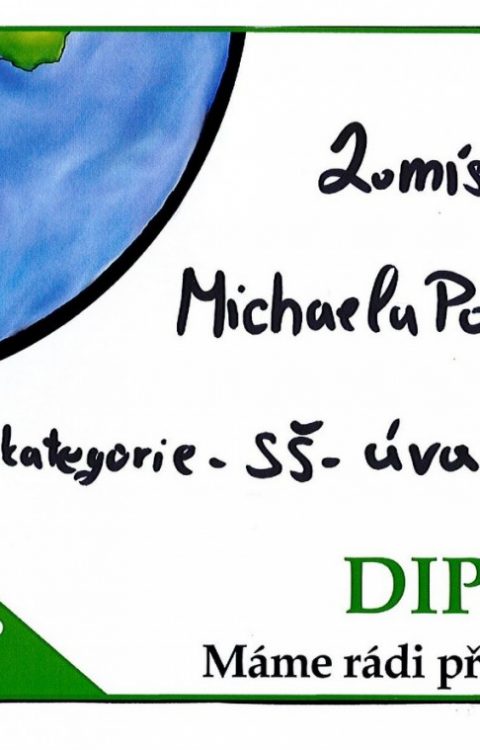 2. mís
Michaelu Po
kategorie - SŠ - úva
DIP
Máme rádi př